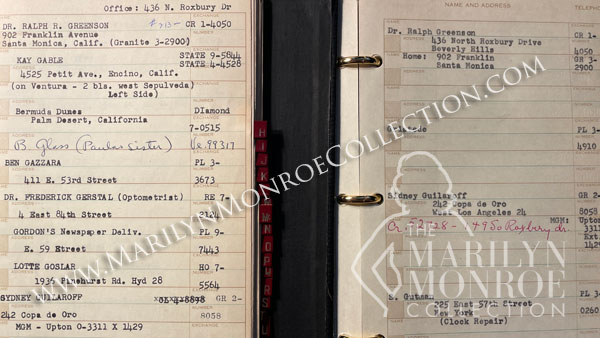 Office: 436 N. Roxbury Dr
DR. RALPH R. GREENSON CR 1-4050
902 Franklin Avenue
Santa Monica, Calif. (Granite 3-2900)
KAY GABLE STATE 9-5844
STATE 4-4528
4525 Petit Ave., Encino, Calif.
(on Ventura - 2 bls. west Sepulveda)
Left Side)
Bermuda Dunes DIamond
Palm Desert, California
7-0515
B. Glass (Paulas Sister) Ve. 99317
BEN GAZZARA PL 3-
411 E. 53rd Street 3673
DR. FREDERICK GERSTAL (Optometrist) RE 7-
4 East 84th Street 2124
GORDON'S Newspaper Deliv. PL 9-
E. 59 Etreet 7443
LOTTE GOSLAR HO 7-
1936 Pinehurst Rd. Hyd 28 5564
SYDNEY GUILAROFF OL 4-8898 GR 2-
242 Copa de Oro 8058
MGM - Upton 0-3311 X 1429
H
I
J
K
M
N
O
P
R
S
U
NAME AND ADDRESS
EXCHANGE
Dr. Ralph Greenson CR 1-
436 North Roxbury Drive
Beverly Hills 4050
Home: 902 Franklin GR 3-
Santa Monica 2900
PL 3-
4910
Sidney Guilaroff GR 2-
242 Copa de Oro
West Los Angeles 24 8058
MGM: Upton
3311
Ext.
1429
E. Gutman PL 3-
225 East 57th Street
New York 0260
(Clock Repair)
WWW.MARILYNMONROECOLLECTION.COM
WWW.MARILYNMONROECOLLECTION.COM
THE
MARILYN
MONROE
COLLECTION